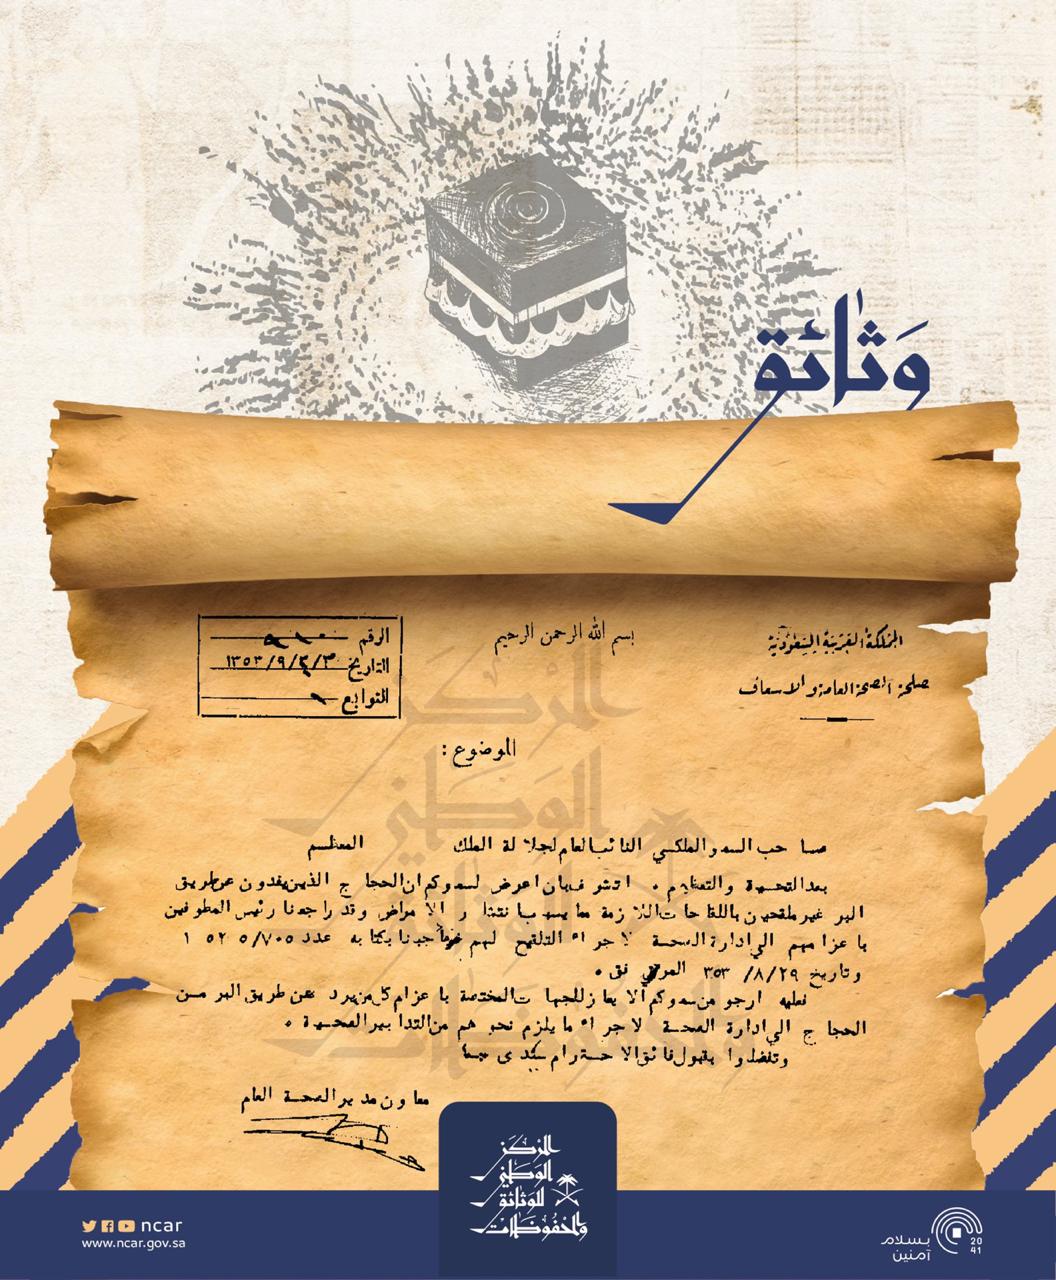 وَثَائق
المملكة العربية السعودية
مصلحة الصحة العامة والاسعاف
بسم الله الرحمن الرحيم
الرقم
التاريخ ١٣٥٣/٩/٢/٣
التوابع
الموضوع :
صاحب السمو الملكي النائب العام لجلالة الملك المعظم
بعد التحية والتعظيم . اتشرف بان اعرض لسموكم ان الحجاج الذين يفدون عن طريق
البر غير ملقحين باللقاحات اللازمة مما يسبب انتشار الامراض وقد راجعنا رئيس المطوفين
باعزامهم الي ادارة الصحة لاجراء التلقيح لهم بكتابه عدد ٥٢٠٥/٧٠٥ ١
وتاريخ ٢٩/٨/ ٣٥٣ المرفق .
فعليه ارجو من سموكم الايعاز للجهات المختصة باعزام كل من يرد عن طريق البر من
الحجاج الي ادارة الصحة لاجراء ما يلزم نحوهم من التدابير الصحية .
وتفضلوا بقبول فائق الاحترام سيدى
معاون مدير الصحة العام
المركز
الوطني
للوثائق
والمحفوظات
ncar
www.ncar.gov.sa
بسلام
آمنين
20
41